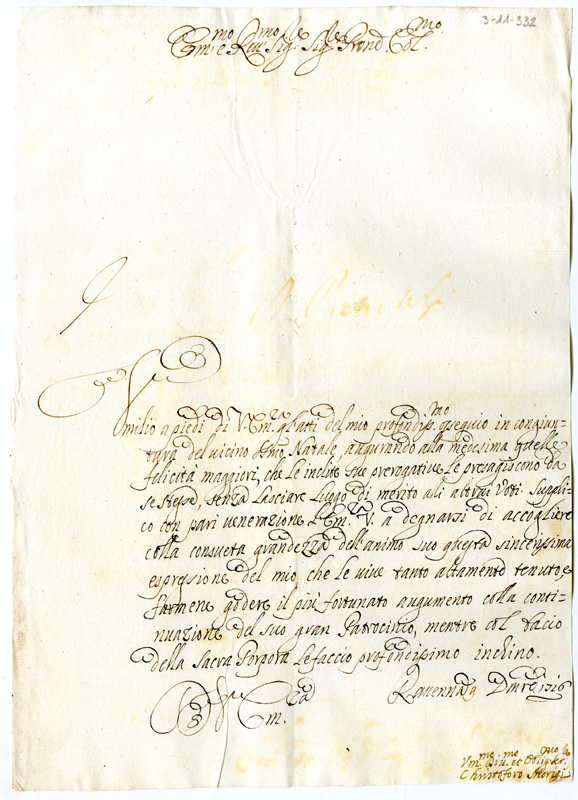 3-11-332
Em.mo e Rev.mo Sig.re Sig.re Prond. Col.mo
Umilio a piedi di V. Em.za gl'atti del mio profondiss.mo ossequio in congiun-
tura del vicino S.mo Natale, augurando alla medesima quelle
felicità maggiori, che le inclite Sue prerogative Le presagiscono da
se stesse, senza lasciare luogo di merito ali altrui Voti. Suppli-
co con pari venerazione l'Em.za V. a degnarsi di accogliere
colla consueta grandezza dell'animo suo questa sincerissima
espressione del mio, che le vive tanto altamente tenuto, e
farmene godere il più fortunato augumento colla conti-
nuazione del suo gran Patrocinio, mentre col bacio
della Sacra Porpora Le faccio profondissimo inchino.
Di V. Em.za Ravenna 9 Dmre 1716
Vm.mo Div.mo et Oblig. Ser.
Christoforo Morigi